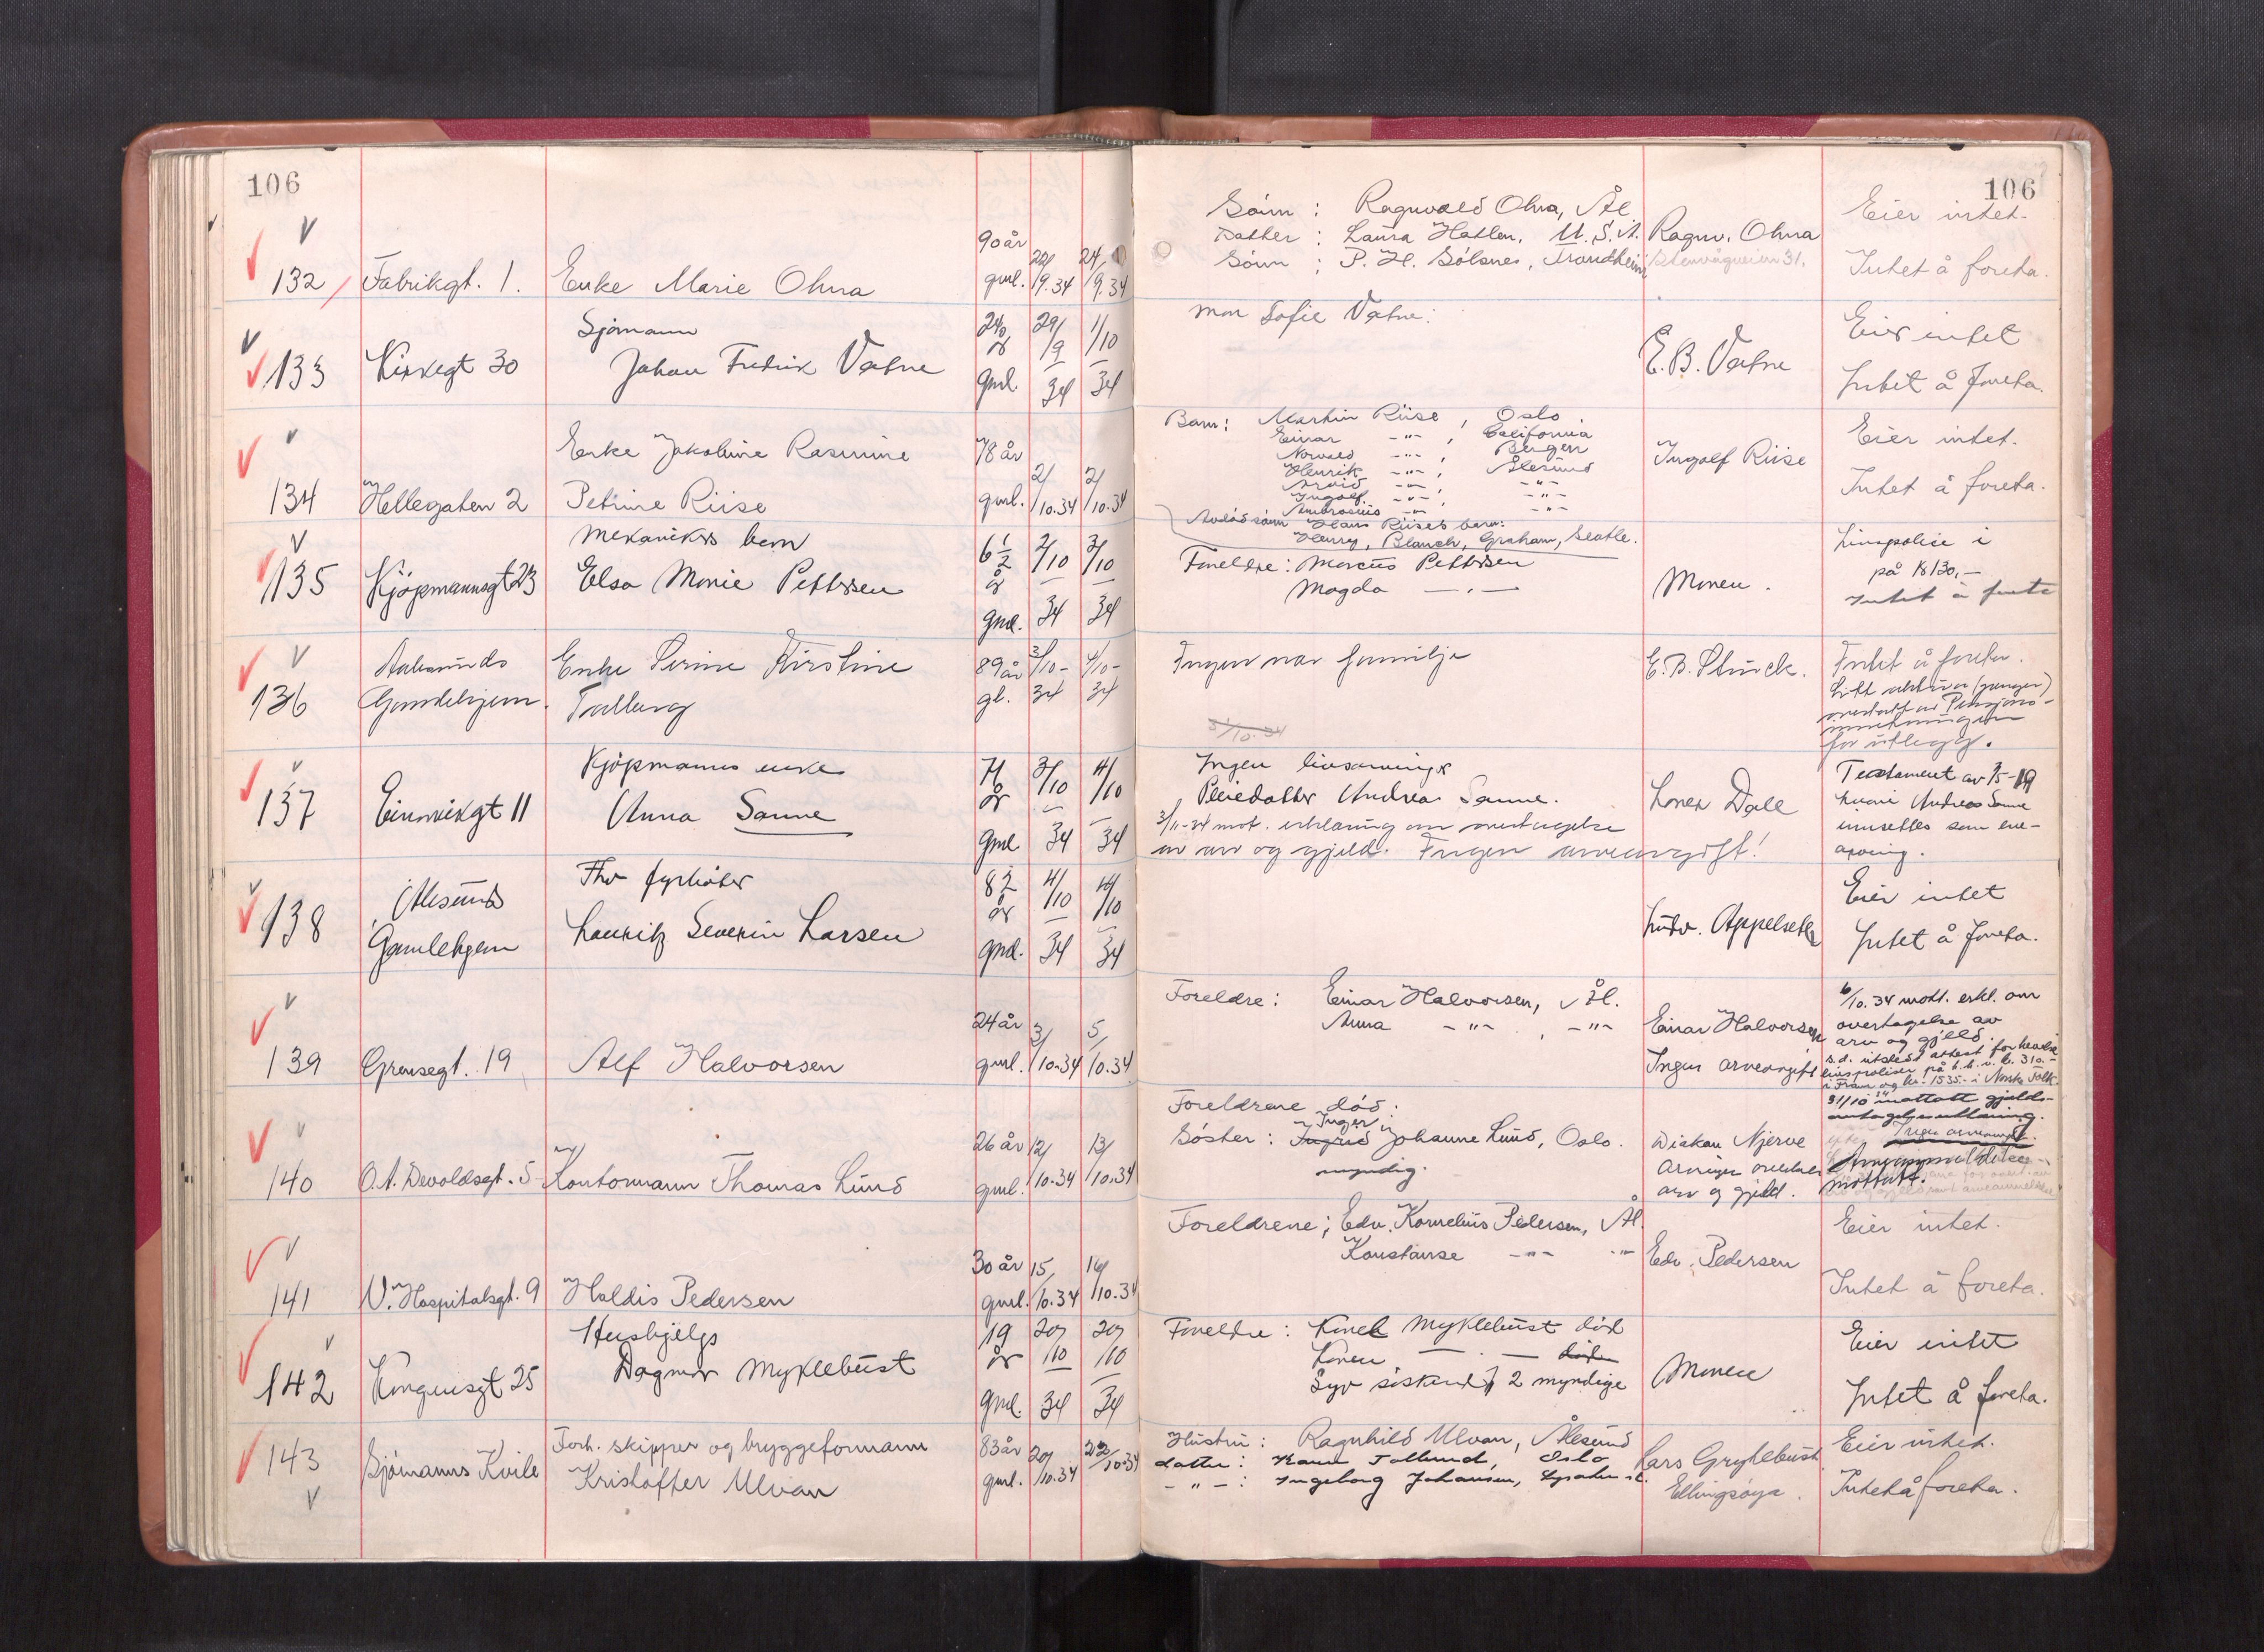 106
106
132 Fabrikgt. 1. Enke Marie Ohna 90 år gml. 22/9.34 24/9.34
Sönn : Ragnvald Ohna, Ål.
Datter : Laura Hatlen, U.S.A.
Sönn : P. H. Sölsnes, Trondheim
Ragnv. Ohna
Stenvågveien 31.
Eier intet.
Intet å foreta.
133 Kirkegt 30
Sjömann
Johan Fredrik Vatne
år gml. 29/9 34 1/10 34
mor Sofie Vatne.
E. B. Vatne
Eier intet
Intet å foreta.
134 Hellegaten 2
Enke Jakobine Rasmine
Petrine Riise
78 år gml. 2/10.34 2/10.34
Barn: Martin Riise, Oslo.
Einar -"- , California
Norvald -"- , Bergen
Henrik -"- , Ålesund
Arvid -"- , -"-
Ingolf -"- , -"-
Ambrosius -"- -"-
Avdöd sönn Hans Riises barn:
Henry, Blanch, Graham, Seatle.
Ingolf Riise
Eier intet.
Intet å foreta.
135 Kjöpmannsgt 23
Mekanikers barn
Elsa Marie Pettersen
6 1/2 år gml. 2/10 34 3/10 34
Foreldre: Marcus Pettersen
Magda — . —
Moren.
Livspolise i
på Kr 130,-
Intet å foreta
136 Aalesunds
Gamlehjem.
Enke Perine Kirstine
89 år gl. 3/10-34 4/10-34
Ingen nær familje
E. B. Stück.
Intet å foreta.
for utlegg.
137 Einarvikgt 11
Kjöpmanns enke
Anna Sanne
71 år gml 3/10 34 4/10 34
Ingen livsarvinger
Pleiedatter Andrea Sanne.
3/11-34 mot. erklæring om overtagelse
av arv og gjeld. Ingen arveavgift!
Lorer Dale
Testament av 7/5-19
hvori Andrea Sanne
innsettes som ene-
arving.
138 Ålesunds
Gamlehjem
Fhv fyrböter
Lauritz Severin Larsen
82 år gml. 4/10 34 4/10 34
Ludv. Appelseth
Eier intet
Intet å foreta.
139 Grensegt. 19 Alf Halvorsen 24 år gml. 3/10.34 5/10.34
Foreldre: Einar Halvorsen, Ål.
Anna -"- , -"-
Einar Halvorsen
Ingen arveavgift
6/10.34 mott. erkl. om
overtagelse av
arv og gjeld.
s.d. utstedt attest for hevelse
livspoliser på kr. 310.-
i Fram og kr. 1535.- i Norske Folk.
140 O. A. Devoldsgt. 5 Kontormann Thomas Lund 26 år gml. 12/10.34 13/10.34
Foreldrene död.
Inger
Söster : Ingrid Johanne Lund, Oslo.
myndig.
Diakon Njerve
Arvingen overtar
arv og gjeld.
31/10 34 mottatt gjelds-
Ingen arveavgift.
mottatt.
141 V. Hospitalsgt. 9 Haldis Pedersen 30 år gml. 15/10.34 16/10.34
Foreldrene; Edv. Kornelius Pedersen, Ål.
Konstanse -"- -"-
Edv. Pedersen
Eier intet.
Intet å foreta.
142 Kongensgt 25
Hushjelp
Dagmar Myklebust
19 år gml. 20/10 34 20/10 34
Foreldre : Karel Myklebust död
Karen — . — död
Syv söskend, 2 myndige
Moren
Eier intet
Intet å foreta.
143 Sjömanns Kvile
Forh. skipper og bryggeformann
Kristoffer Ulvan
83 år gml. 20/10.34 22/10.34
Hustru : Ragnhild Ulvan, Ålesund
datter : Tollund, Oslo
-"- : Ingeborg Johansen,
Lars Gryttebust
Ellingsöya.
Eier intet.
Intet å foreta.